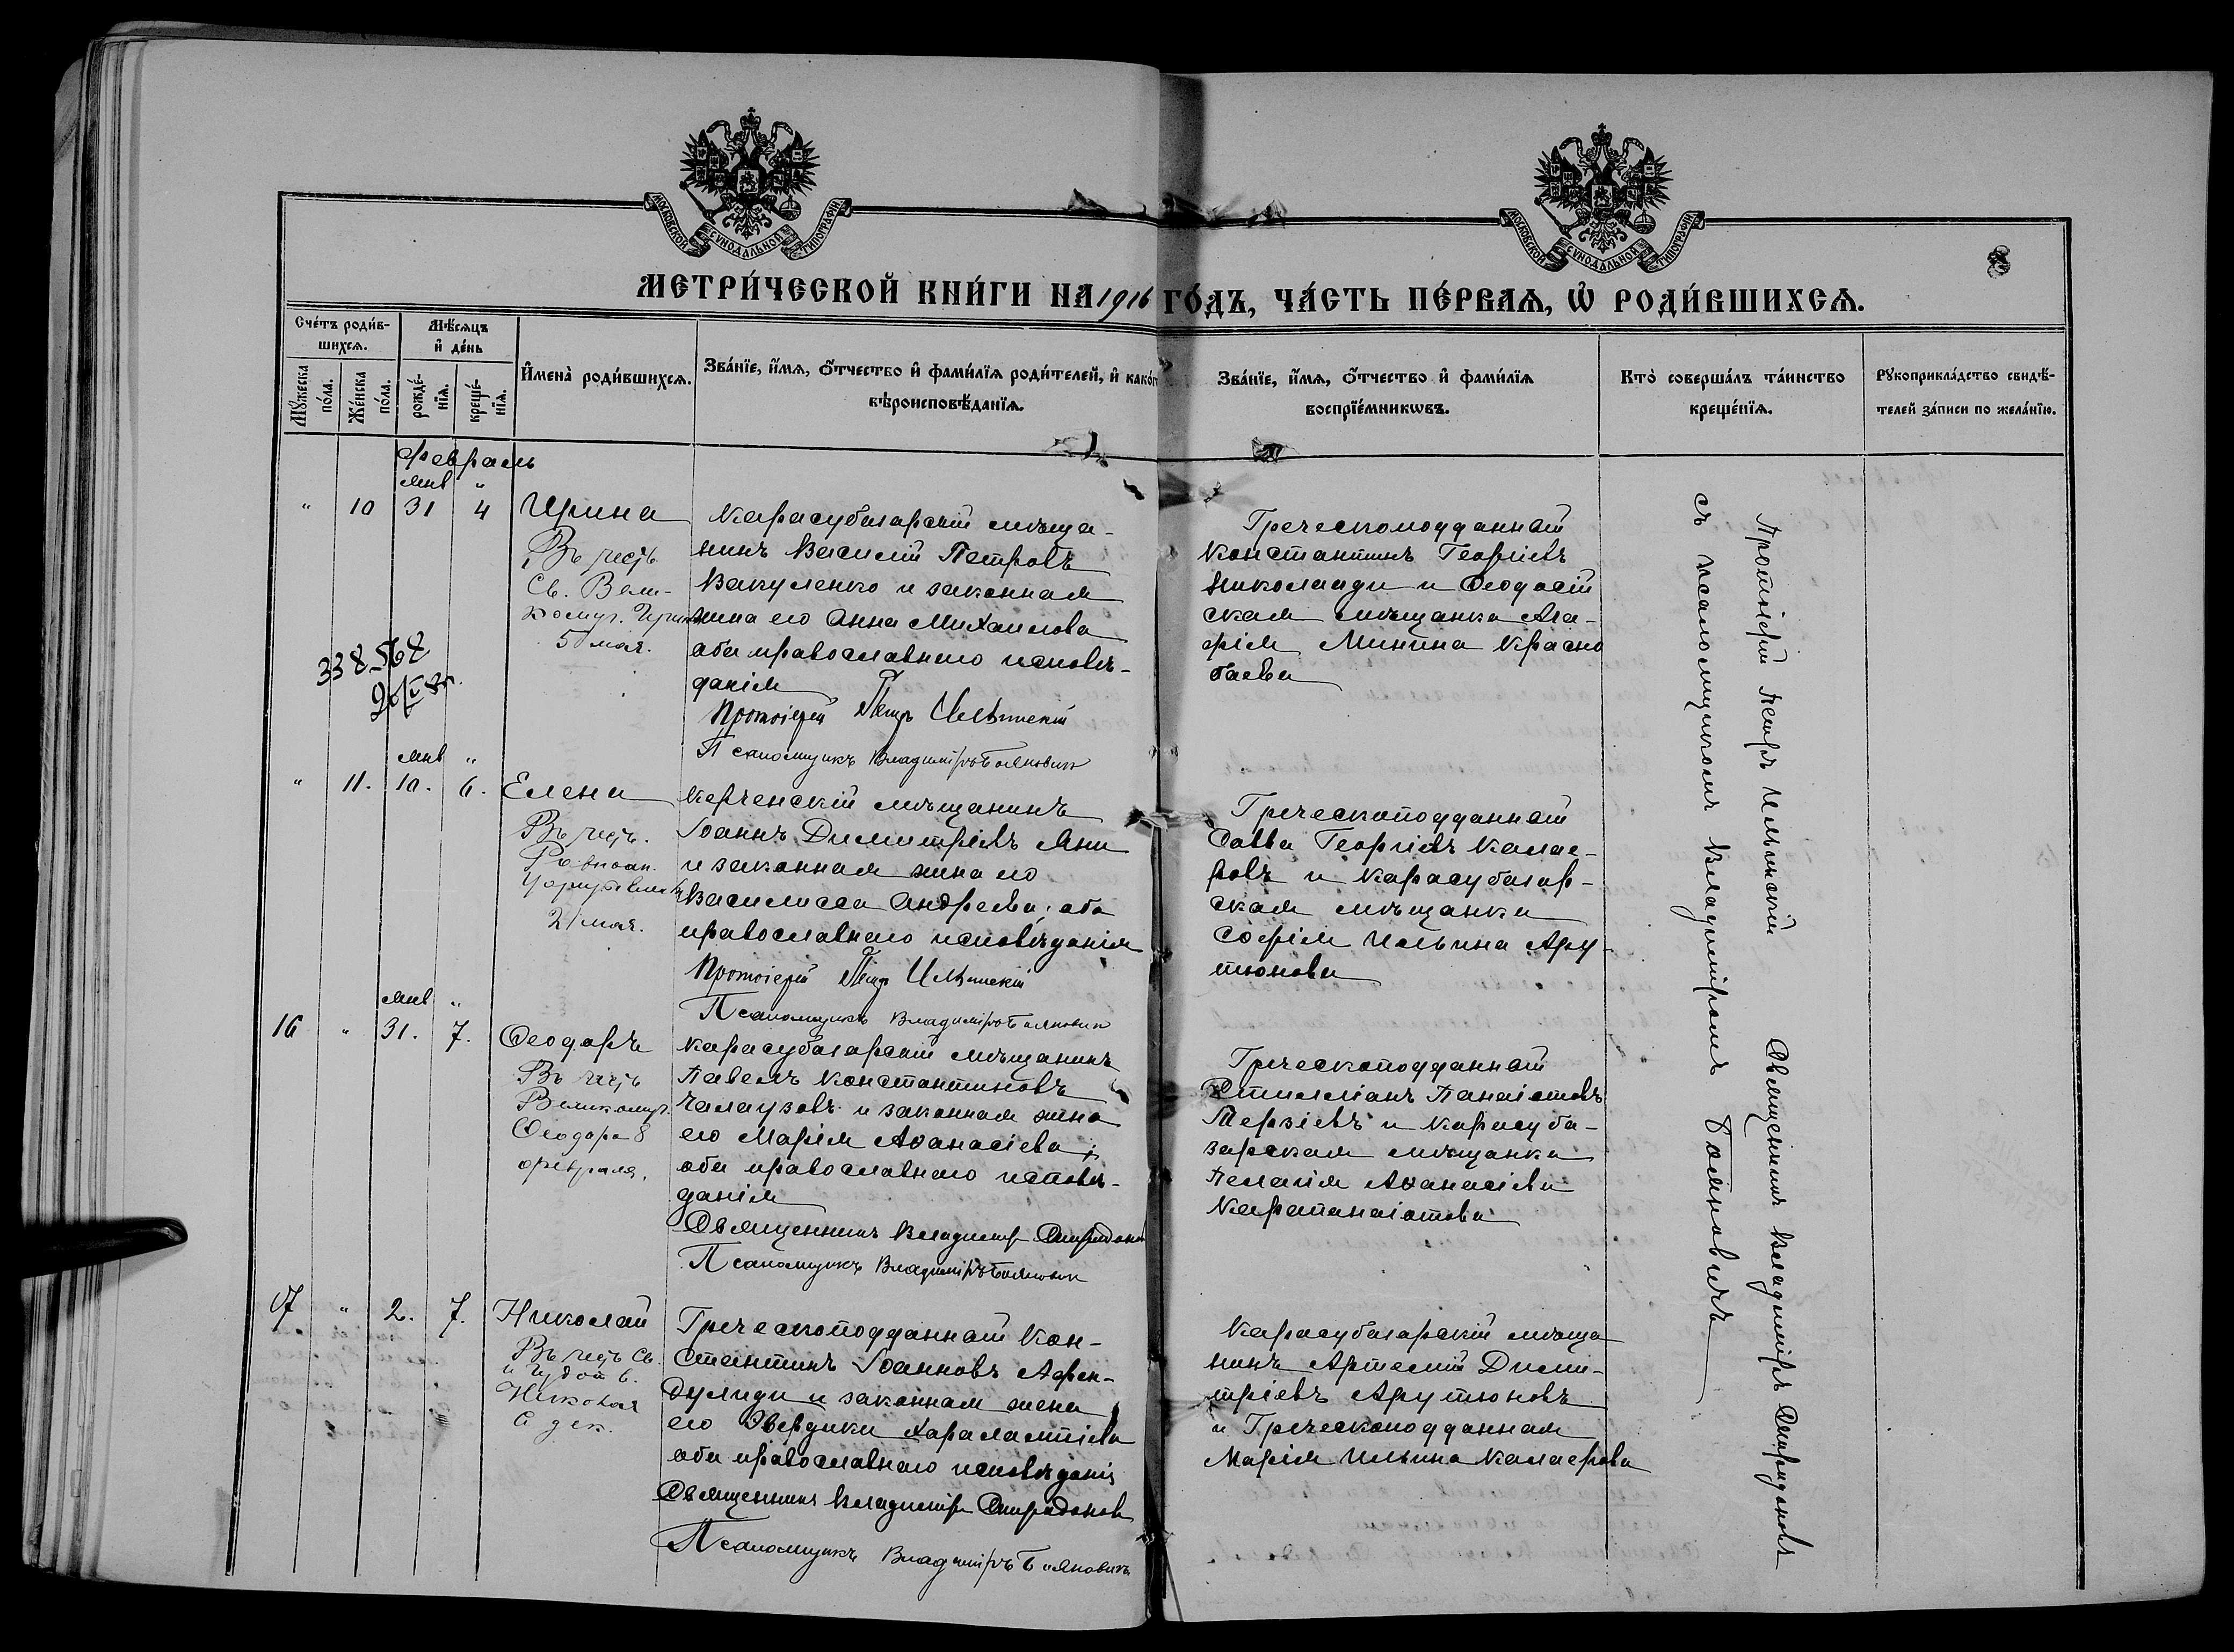 МОСКОВСКОЙ СѴНОДАЛЬНОЙ ТИПОГРАФІИ
МОСКОВСКОЙ СѴНОДАЛЬНОЙ ТИПОГРАФІИ
МЕТРИ́ЧЕСКОЙ КНИ́ГИ НА 1916 ГО́ДЪ, ЧА́СТЬ ПЕ́РВАѦ, Ѡ҆ РОДИ́ВШИХСѦ.
Сче́тъ роди́в-
шихсѧ.
Мѣ́сѧцъ
и҆ де́нь
Мꙋ́жеска
по́ла.
Же́нска
по́ла.
рожде́-
нїѧ.
креще́-
нїѧ.
И҆мена̀ роди́вшихсѧ.
Зва́нїе, и҆́мѧ, ѻ҆́тчество и҆ фами́лїѧ роди́телей, и҆ како́г
вѣроисповѣ́данїѧ.
Зва́нїе, и҆́мѧ, ѻ҆́тчество и҆ фами́лїѧ
воспрїе́мникѡвъ.
Кто̀ соверша́лъ та́инство
креще́нїѧ.
Рꙋкоприкла́дство свидѣ́-
телей за́писи по жела́нїю.
Февраль
Янв "
" 10 31 4
Ирина
Въ честь
Св. Вели-
комуч. Ирины
5 мая.
338568
Карасубазарскій мѣща-
нинъ Василій Петровъ
Вакуленко и законная
жена его Анна Михаилова
оба православнаго исповѣ-
данія
Протоіерей Петръ Ильинскій
Псаломщикъ Владиміръ Бояновичъ
Греческоподданный
Константинъ Георгіевъ
Николаиди и Ѳеодосій
ская мѣщанка Ага-
фія Минина Красно
баева
Янв "
" 11. 10. 6.
Елена
Въ честь.
Равноап.
Царицы Елены
21 мая.
Керченскій мѣщанинъ
Іоаннъ Димитріевъ Яни
и законная жена его
Василисса Андреева; оба
православнаго исповѣданія
Протоіерей Петръ Ильинскій
Псаломщикъ Владиміръ Бояновичъ
Греческоподданный
Савва Георгіевъ Калае-
ровъ и Карасубазар-
ская мѣщанка
Софія Ильина Ару-
тюнова
Янв "
16 " 31. 7.
Ѳеодоръ
Въ честь
Великомуч.
Ѳеодора 8
февраля.
Карасубазарскій мѣщанинъ
Павелъ Константиновъ
Чалаузовъ и законная жена
его Марія Аѳанасіева;
оба православнаго исповѣ-
данія
Священникъ Владиміръ Спиридоновъ
Псаломщикъ Владиміръ Бояновичъ
Греческоподданный
Стилліанъ Панаіотовъ
Терзіевъ и Карасуба-
зарская мѣщанка
Пелагія Аѳанасіева
Карапанаіотова
17 " 2. 7.
Николай
Въ честь Св.
и Чудотв.
Николая
6 дек.
Греческоподданный Кон-
стантинъ Іоанновъ Афен-
дулиди и законная жена
его Эвердики Харалампіева
оба православнаго исповѣданія
Священникъ Владиміръ Спиридоновъ
Псаломщикъ Владиміръ Бояновичъ
Карасубазарскій мѣща
нинъ Артемій Дими-
тріевъ Арутюновъ
и Греческоподданная
Марія Ильина Калаерова
Протоіерей Петръ Ильинскій Священникъ Владиміръ Спиридоновъ
съ псаломщикомъ Владиміромъ Бояновичъ